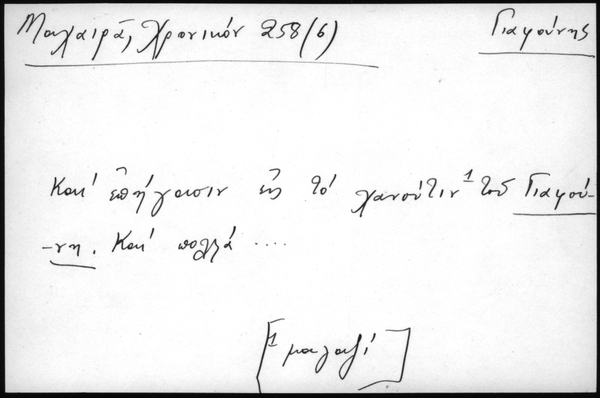 Μαχαιρᾶ, Χρονικόν 258(6) Γιαφούνης
Καὶ ἐπήγασιν εἰς τὸ χανούτιν¹ τοῦ Γιαφού-
-νη. Καὶ πολλά ....
[¹ μαγαζί]